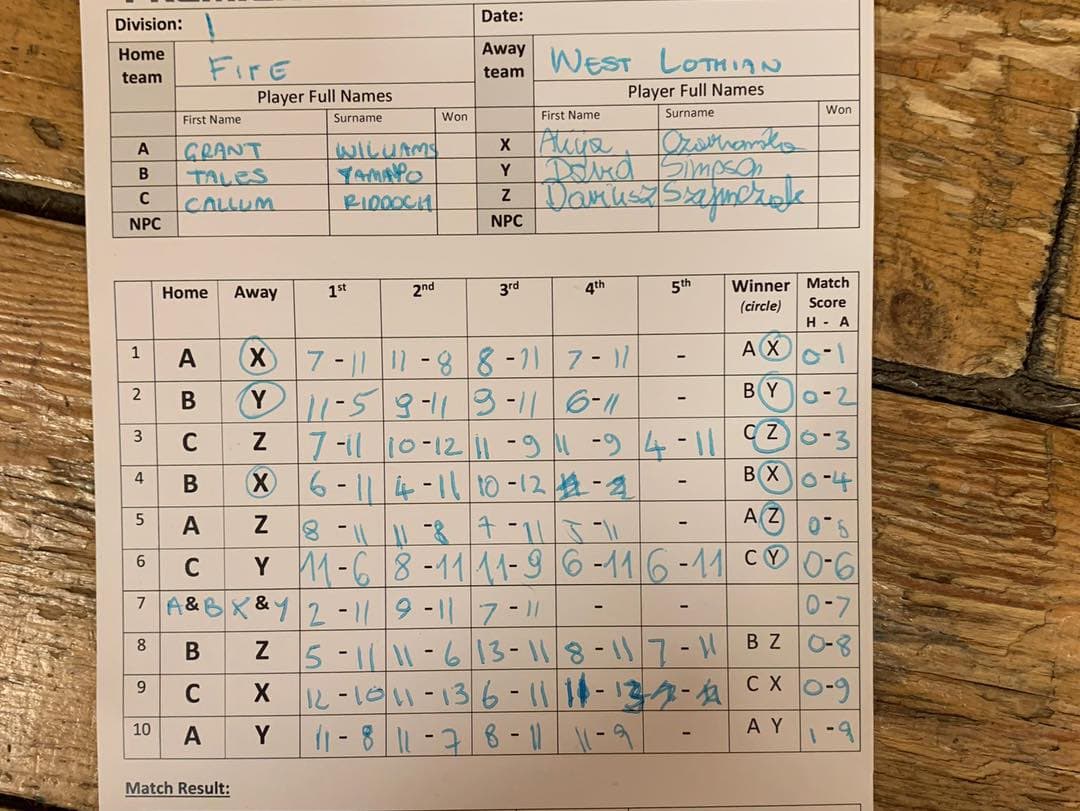 Division: 1 Date:
Home team FIFE Away team WEST LOTHIAN
Player Full Names Player Full Names
First Name Surname Won First Name Surname Won
A GRANT WILLIAMS X Alicja
B TALES Y David Simpson
C CALLUM RIDDOCH Z Dariusz Szafmczak
NPC NPC
Home Away 1st 2nd 3rd 4th 5th Winner (circle) Match Score H - A
1 A X 7 - 11 11 - 8 8 - 11 7 - 11 - A X 0-1
2 B Y 11 - 5 9 - 11 9 - 11 6 - 11 - B Y 0-2
3 C Z 7 - 11 10 - 12 11 - 9 11 - 9 4 - 11 C Z 0-3
4 B X 6 - 11 4 - 11 10 - 12 - - B X 0-4
5 A Z 8 - 11 11 - 8 7 - 11 5 - 11 - A Z 0-5
6 C Y 11 - 6 8 - 11 11 - 9 6 - 11 6 - 11 C Y 0-6
7 A & B X & Y 2 - 11 9 - 11 7 - 11 - - 0-7
8 B Z 5 - 11 11 - 6 13 - 11 8 - 11 7 - 11 B Z 0-8
9 C X 12 - 10 11 - 13 6 - 11 11 - 13 - C X 0-9
10 A Y 11 - 8 11 - 7 8 - 11 11 - 9 - A Y 1-9
Match Result: